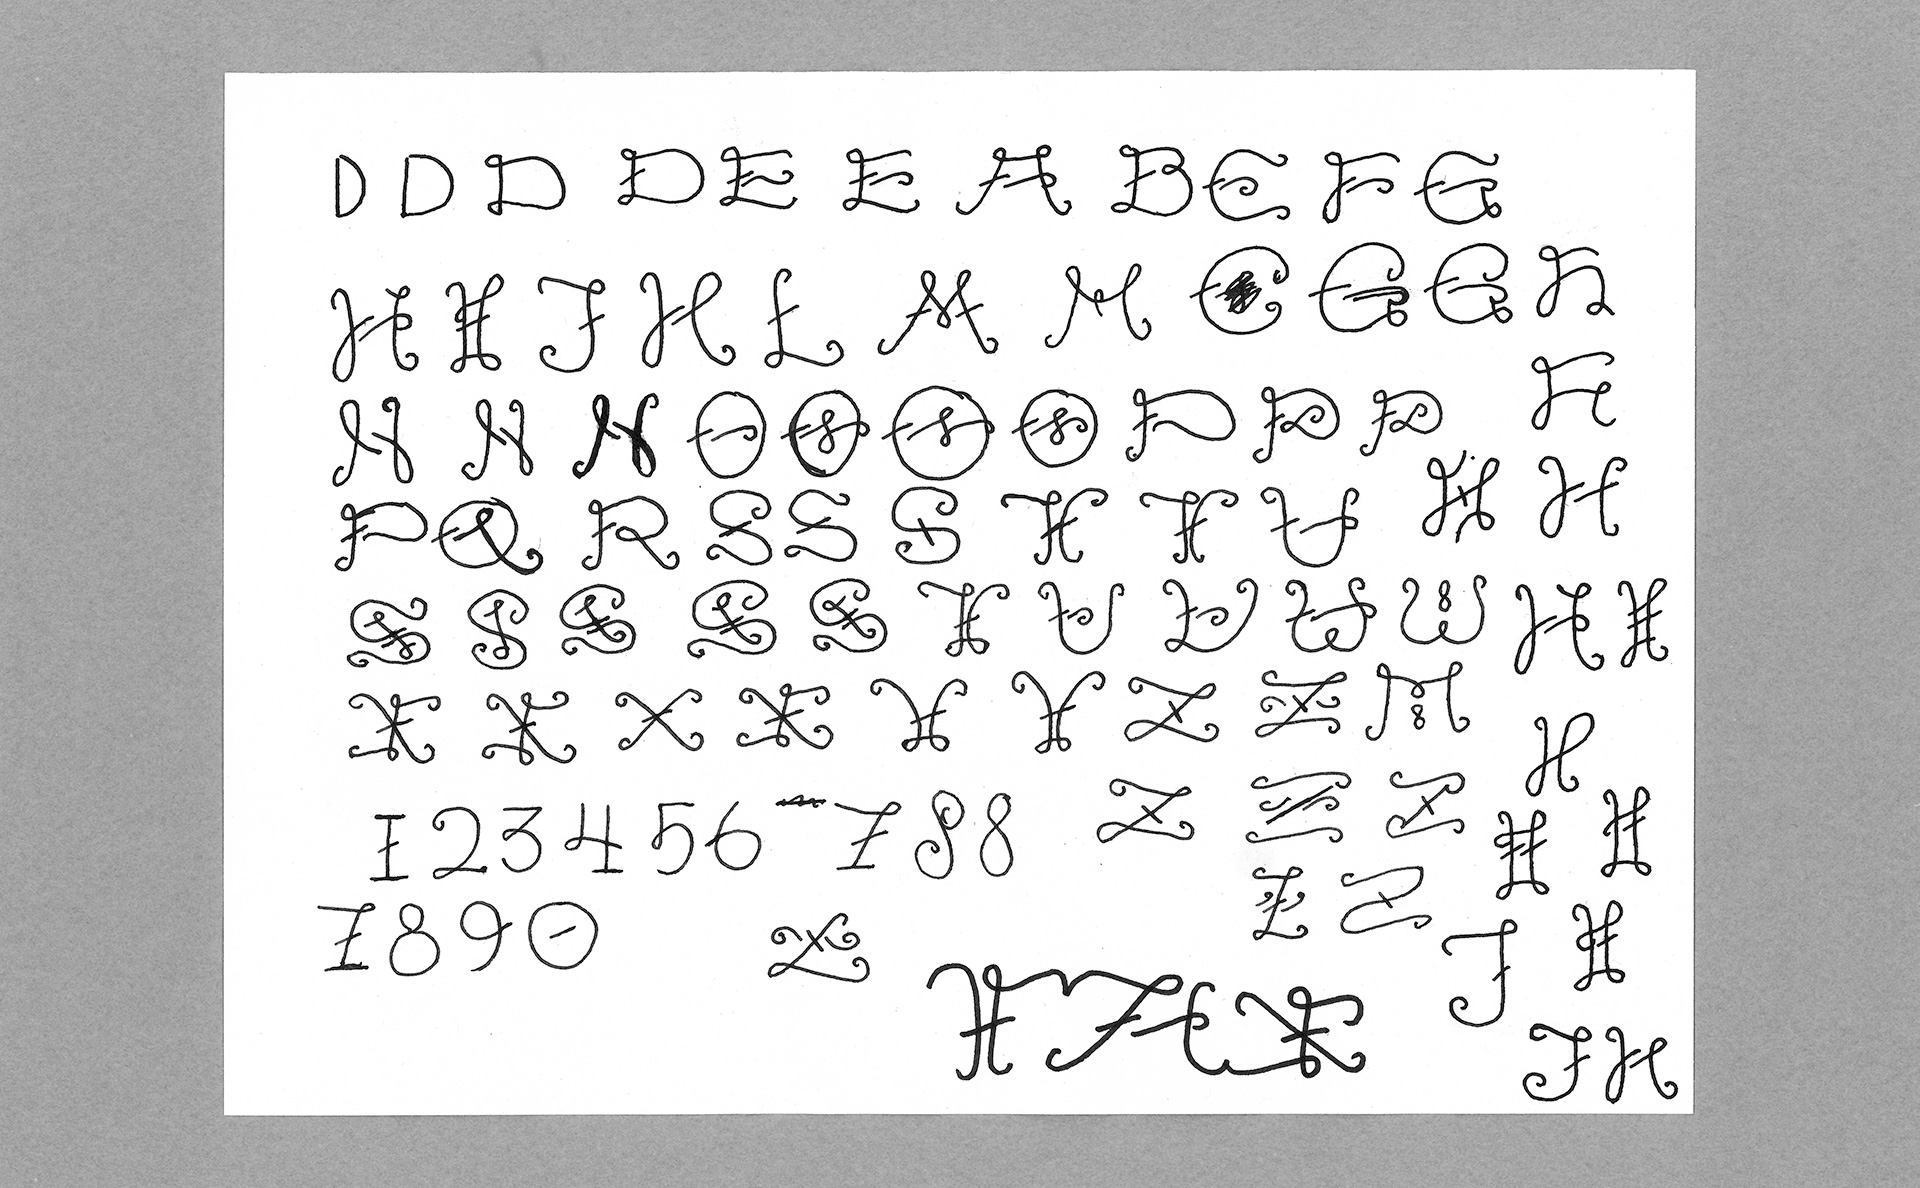 D D D D E E A B C F G
H I J H L M M C G G H
N N N O O O O P P P H
P Q R S S S T T U H H
S S S S S T U U W W H I
X X X X Y Y Z Z M H
1 2 3 4 5 6 7 8 8 Z Z Z I I
7 8 9 0 Z Z Z J I
J H